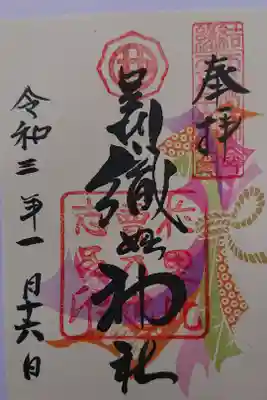 奉拝
足利織姫神社
令和三年一月十六日